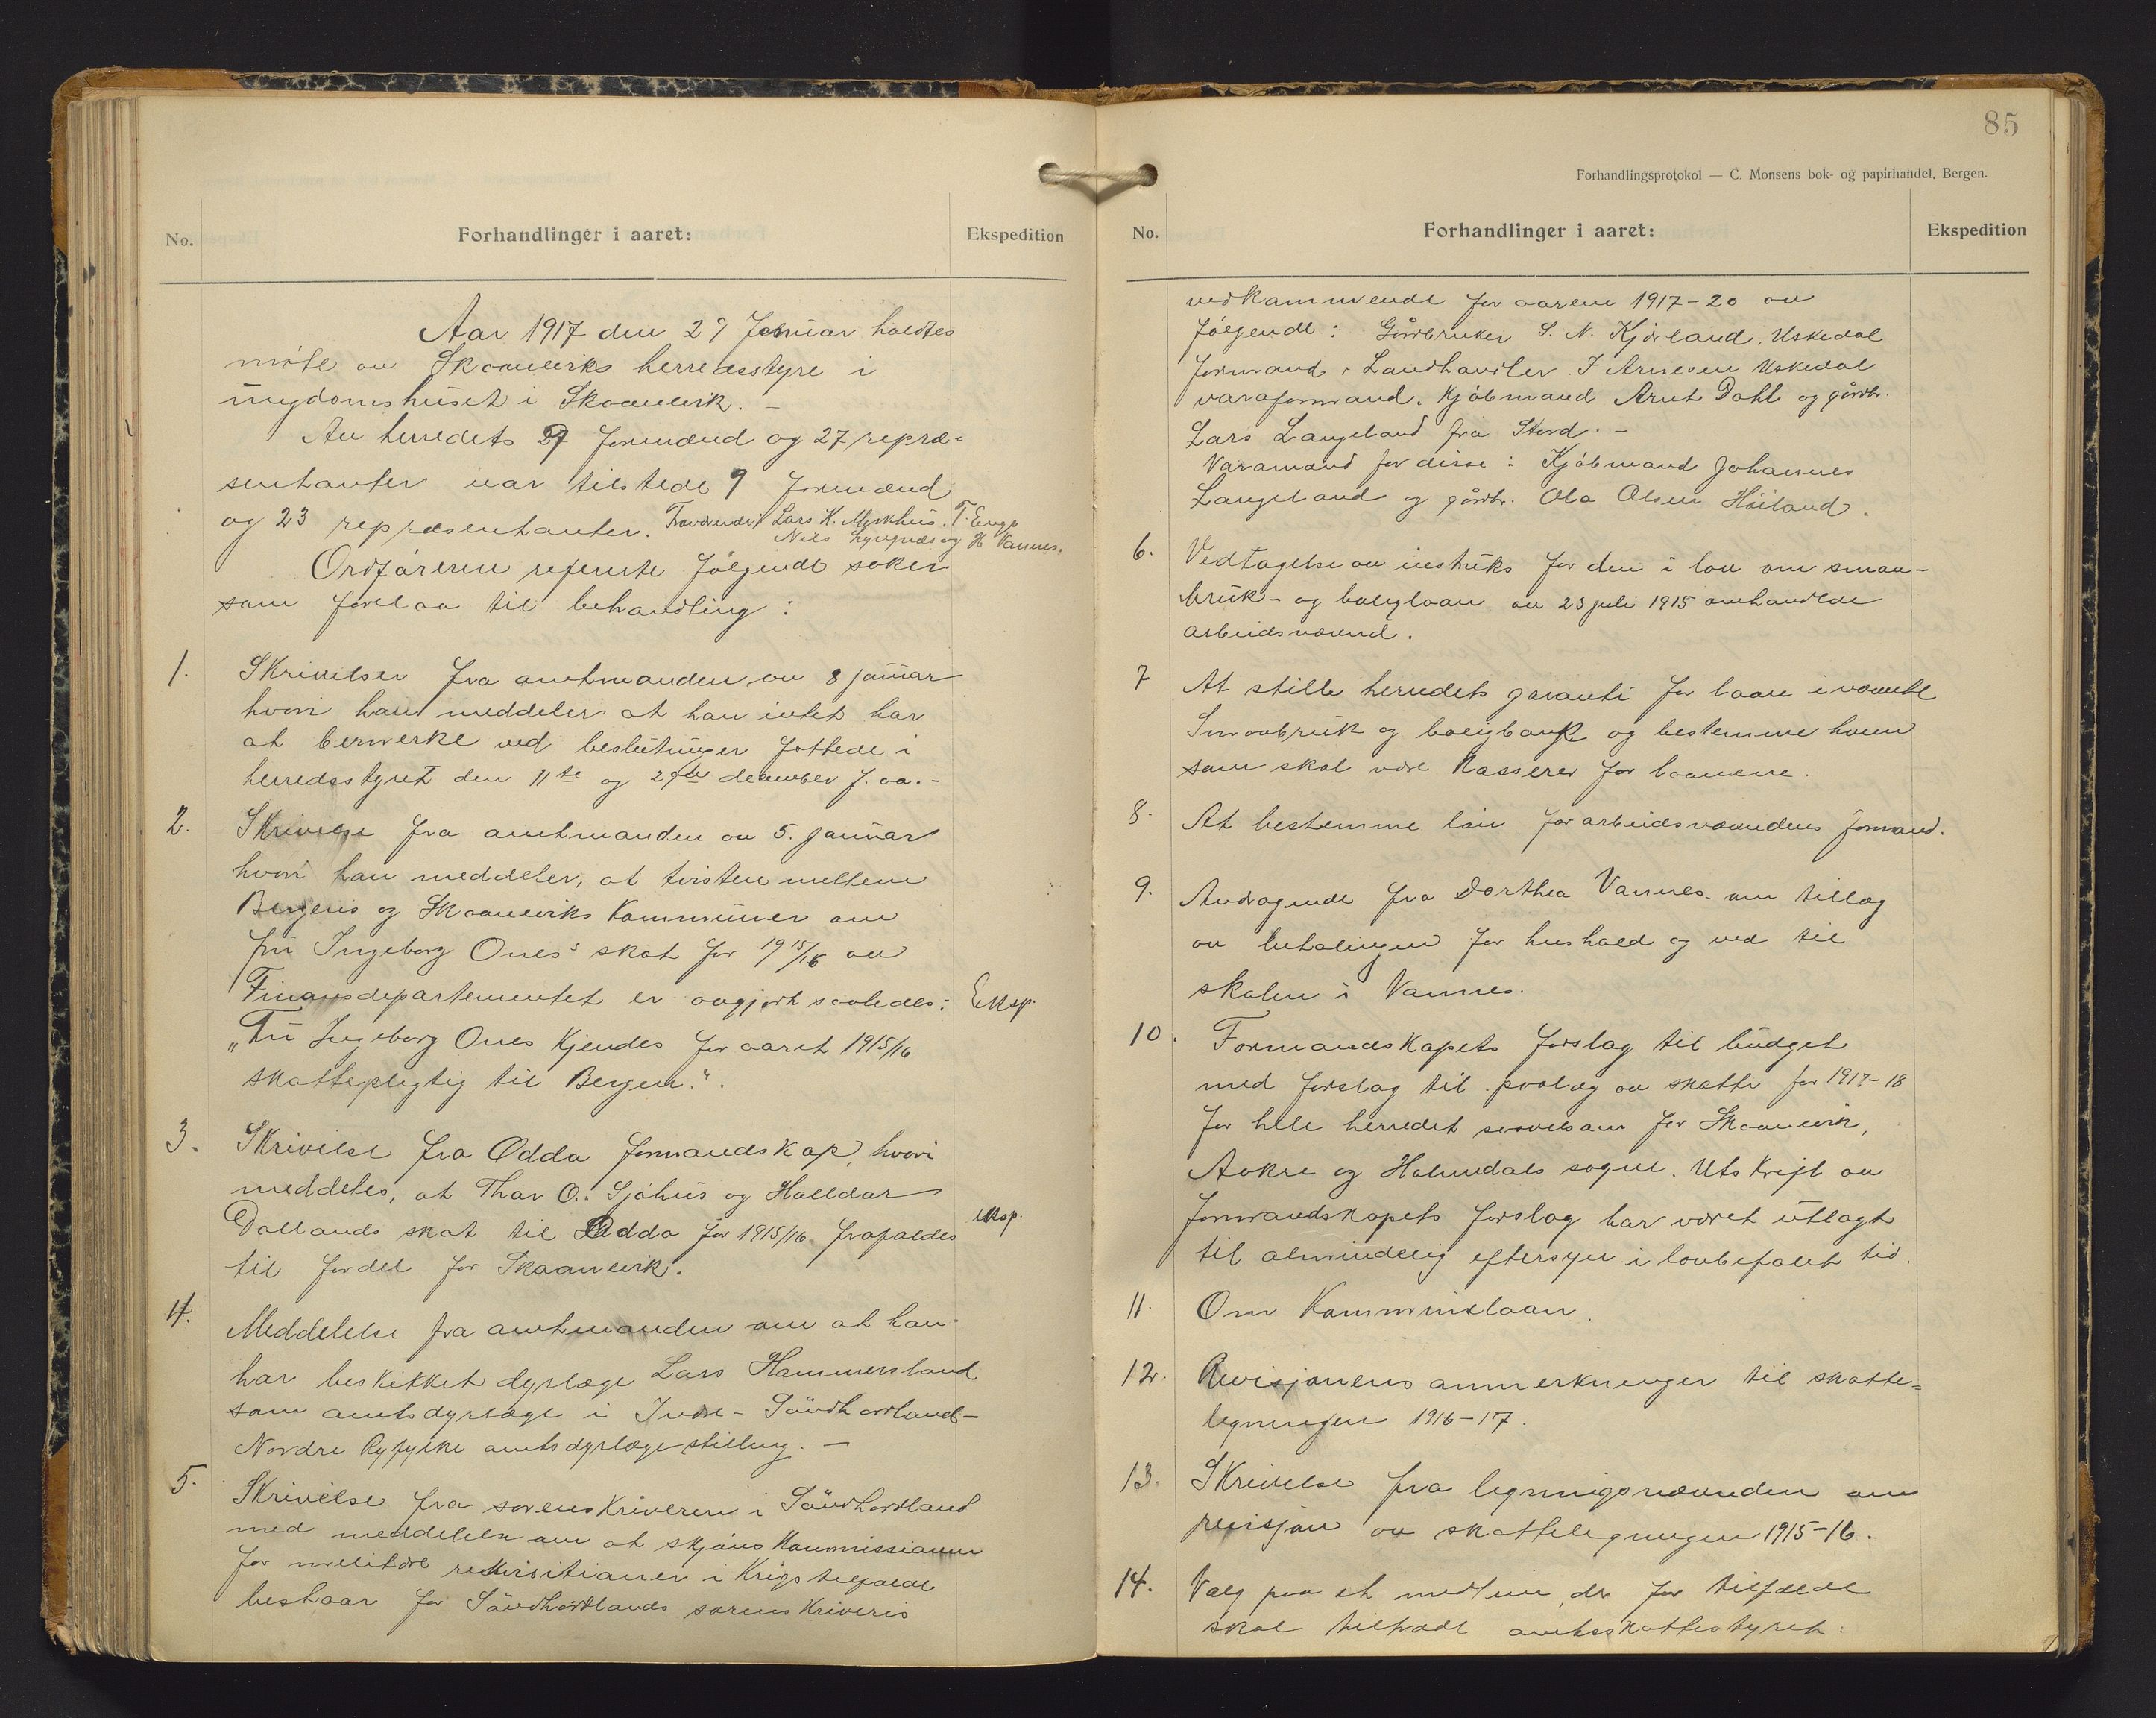 No.
Forhandlinger i aaret:
Ekspedition
Aar 1917 den 29 Januar holdtes
møte av Skaaneviks herredsstyre i
ungdomshuset i Skaanevik. –
Av herredets 9 formænd og 27 repræ-
sentanter var tilstede 9 formænd
og 23 repræsentanter. Fraværende: Lars K. Markhus. T. Enge
Nils og H Vannes.
Ordføreren refererte følgende saker
som forelaa til behandling:
1. Skrivelser fra amtmanden av 8 januar
hvori han meddeler at han intet har
at bemerke ved beslutninger fattede i
herredsstyret den 11te og 27de december f. aa. –
2. Skrivelse fra amtmanden av 5. januar
hvori han meddeler, at tvisten mellem
Bergens og Skaaneviks kommuner om
fru Ingeborg Ones's skat for 1915/16 av
Finansdepartementet er avgjort saaledes: Eksp.
"Fru Ingeborg Ones kjendes for aaret 1915/16
skattepligtig til Bergen.".
3. Skrivelse fra Odda formandskap, hvori
meddeles, at Thor O. Sjøhus og Halldor
Dallands skat til Odda for 1915/16 frafaldes eksp.
til fordel for Skaanevik.
4. Meddelelse fra amtmanden om at han
har beskikket dyrlæge Lars Hammersland
som amtsdyrlæge i Indre-Søndhordland-
Nordre Ryfylke amtsdyrlægestilling. –
5. Skrivelse fra sorenskriveren i Søndhordland
med meddelelse om at skjønskommissionen
for militære rekvisitioner i krigstilfælde
bestaar for Søndhordlands sorenskriveris
85
Forhandlingsprotokol — C. Monsens bok- og papirhandel, Bergen.
No.
Forhandlinger i aaret:
Ekspedition
vedkommende for aarene 1917-20 av
følgende: Gårdbruker S. N. Kjærland, Uskedal
formand, Landhandler J Arnesen Uskedal
varaformand, Kjøbmand Arnt Dahl og gårdbr.
Lars Langeland fra Stord. –
Varamænd for disse: Kjøbmand Johannes
Langeland og gårdbr. Ola Olsen Høiland.
6. Vedtagelse av instruks for den i lov om smaa-
bruk- og boliglaan av 23 juli 1915 omhandlede
arbeidsnævnd.
7 At stille herredets garanti for laan i nævnte
Smaabruk og boligbank og bestemme hvem
som skal være kasserer for laanene.
8. At bestemme løn for arbeidsnævndens formand.
9. Andragende fra Dorthea Vannes om tillæg
av betalingen for hushold og ved til
skolen i Vannes.
10. Formandskapets forslag til budget
med forslag til paalæg av skatte for 1917-18
for hele herredet saavelsom for Skaanevik,
Aakre og Holmdals sogne. Utskrift av
formandskapets forslag har været utlagt
til almindelig eftersyn i lovbefalet tid.
11. Om Kommunelaan.
12. Revisjonens anmerkninger til skatte-
ligningen 1916-17.
13. Skrivelse fra ligningsnævnden om
revisjon av skatteligningen 1915-16.
14. Valg paa et medlem, der for tilfælde
skal tiltræde amtsskattestyret.